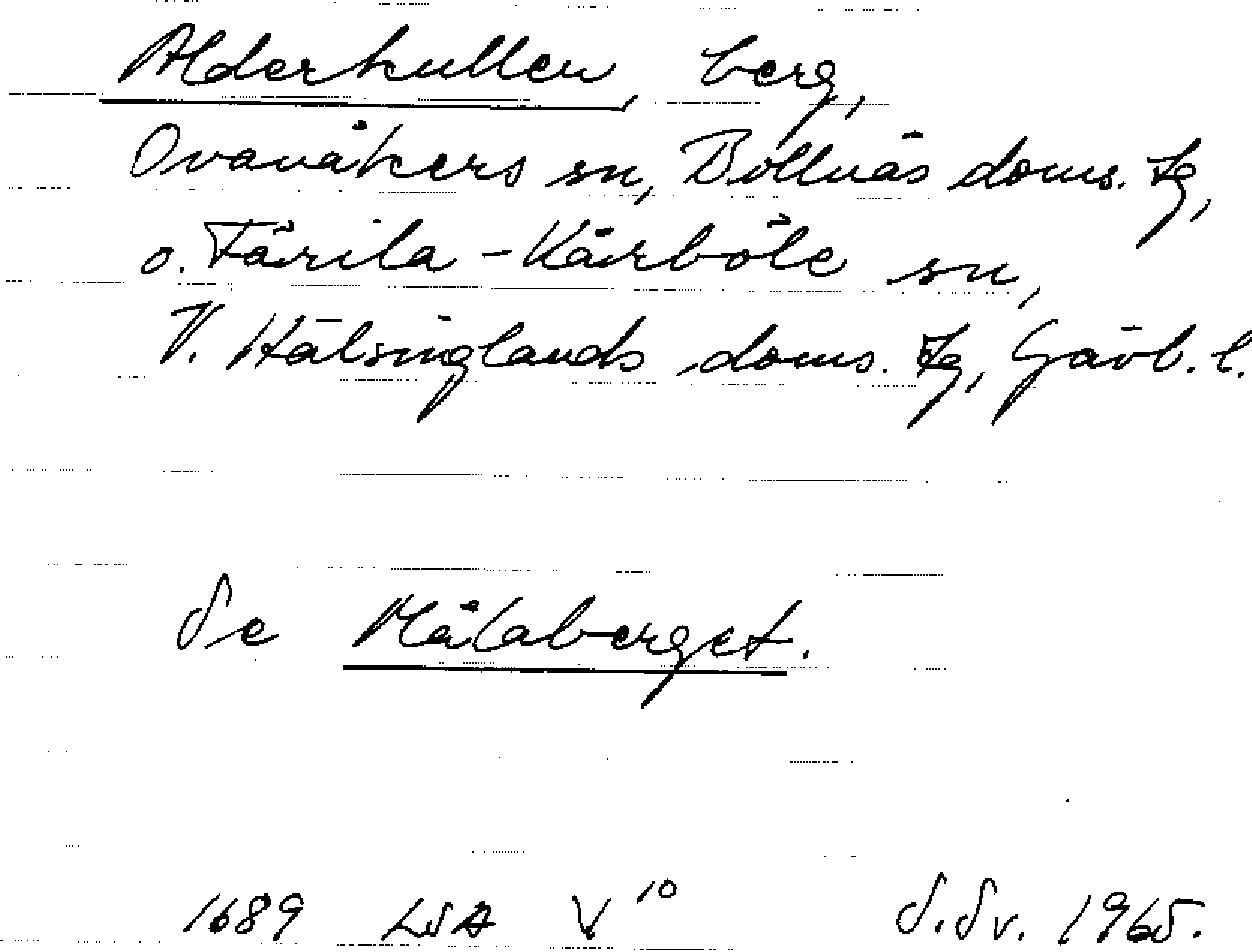 Alderkullen, berg,
Ovanåkers sn, Bollnäs doms. tg,
o. Färila-Kårböle sn,
V. Hälsinglands doms. tg, Gävl. l.
Se Målaberget.
1689 LSA V 10 S.Sv. 1965.